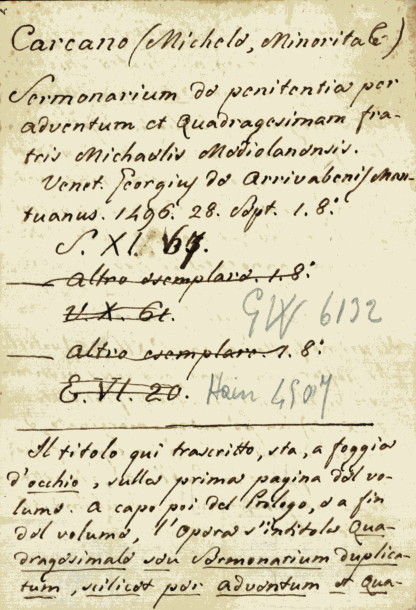 Carcano (Michele, Minorita)
Sermonarium de penitentia per
adventum et Quadragesimam fra-
tris Michaelis Mediolanensis.
Venet. Georgius de Arrivabenis Man-
tuanus. 1496. 28. Sept. 1. 8°.
S. XI. 67.
Altro esemplare. 1. 8°.
V. X. 61.
GW 6132
Altro esemplare. 1. 8°.
E. VI. 20. Hain 4507
Il titolo qui trascritto, sta, a foggia
d'occhio, sulla prima pagina del vo-
lume. A capo poi del Prologo, e a fin
del volume, l'Opera s'intitola Qua-
dragesimale seu Sermonarium duplica-
tum, scilicet per Adventum et Qua-